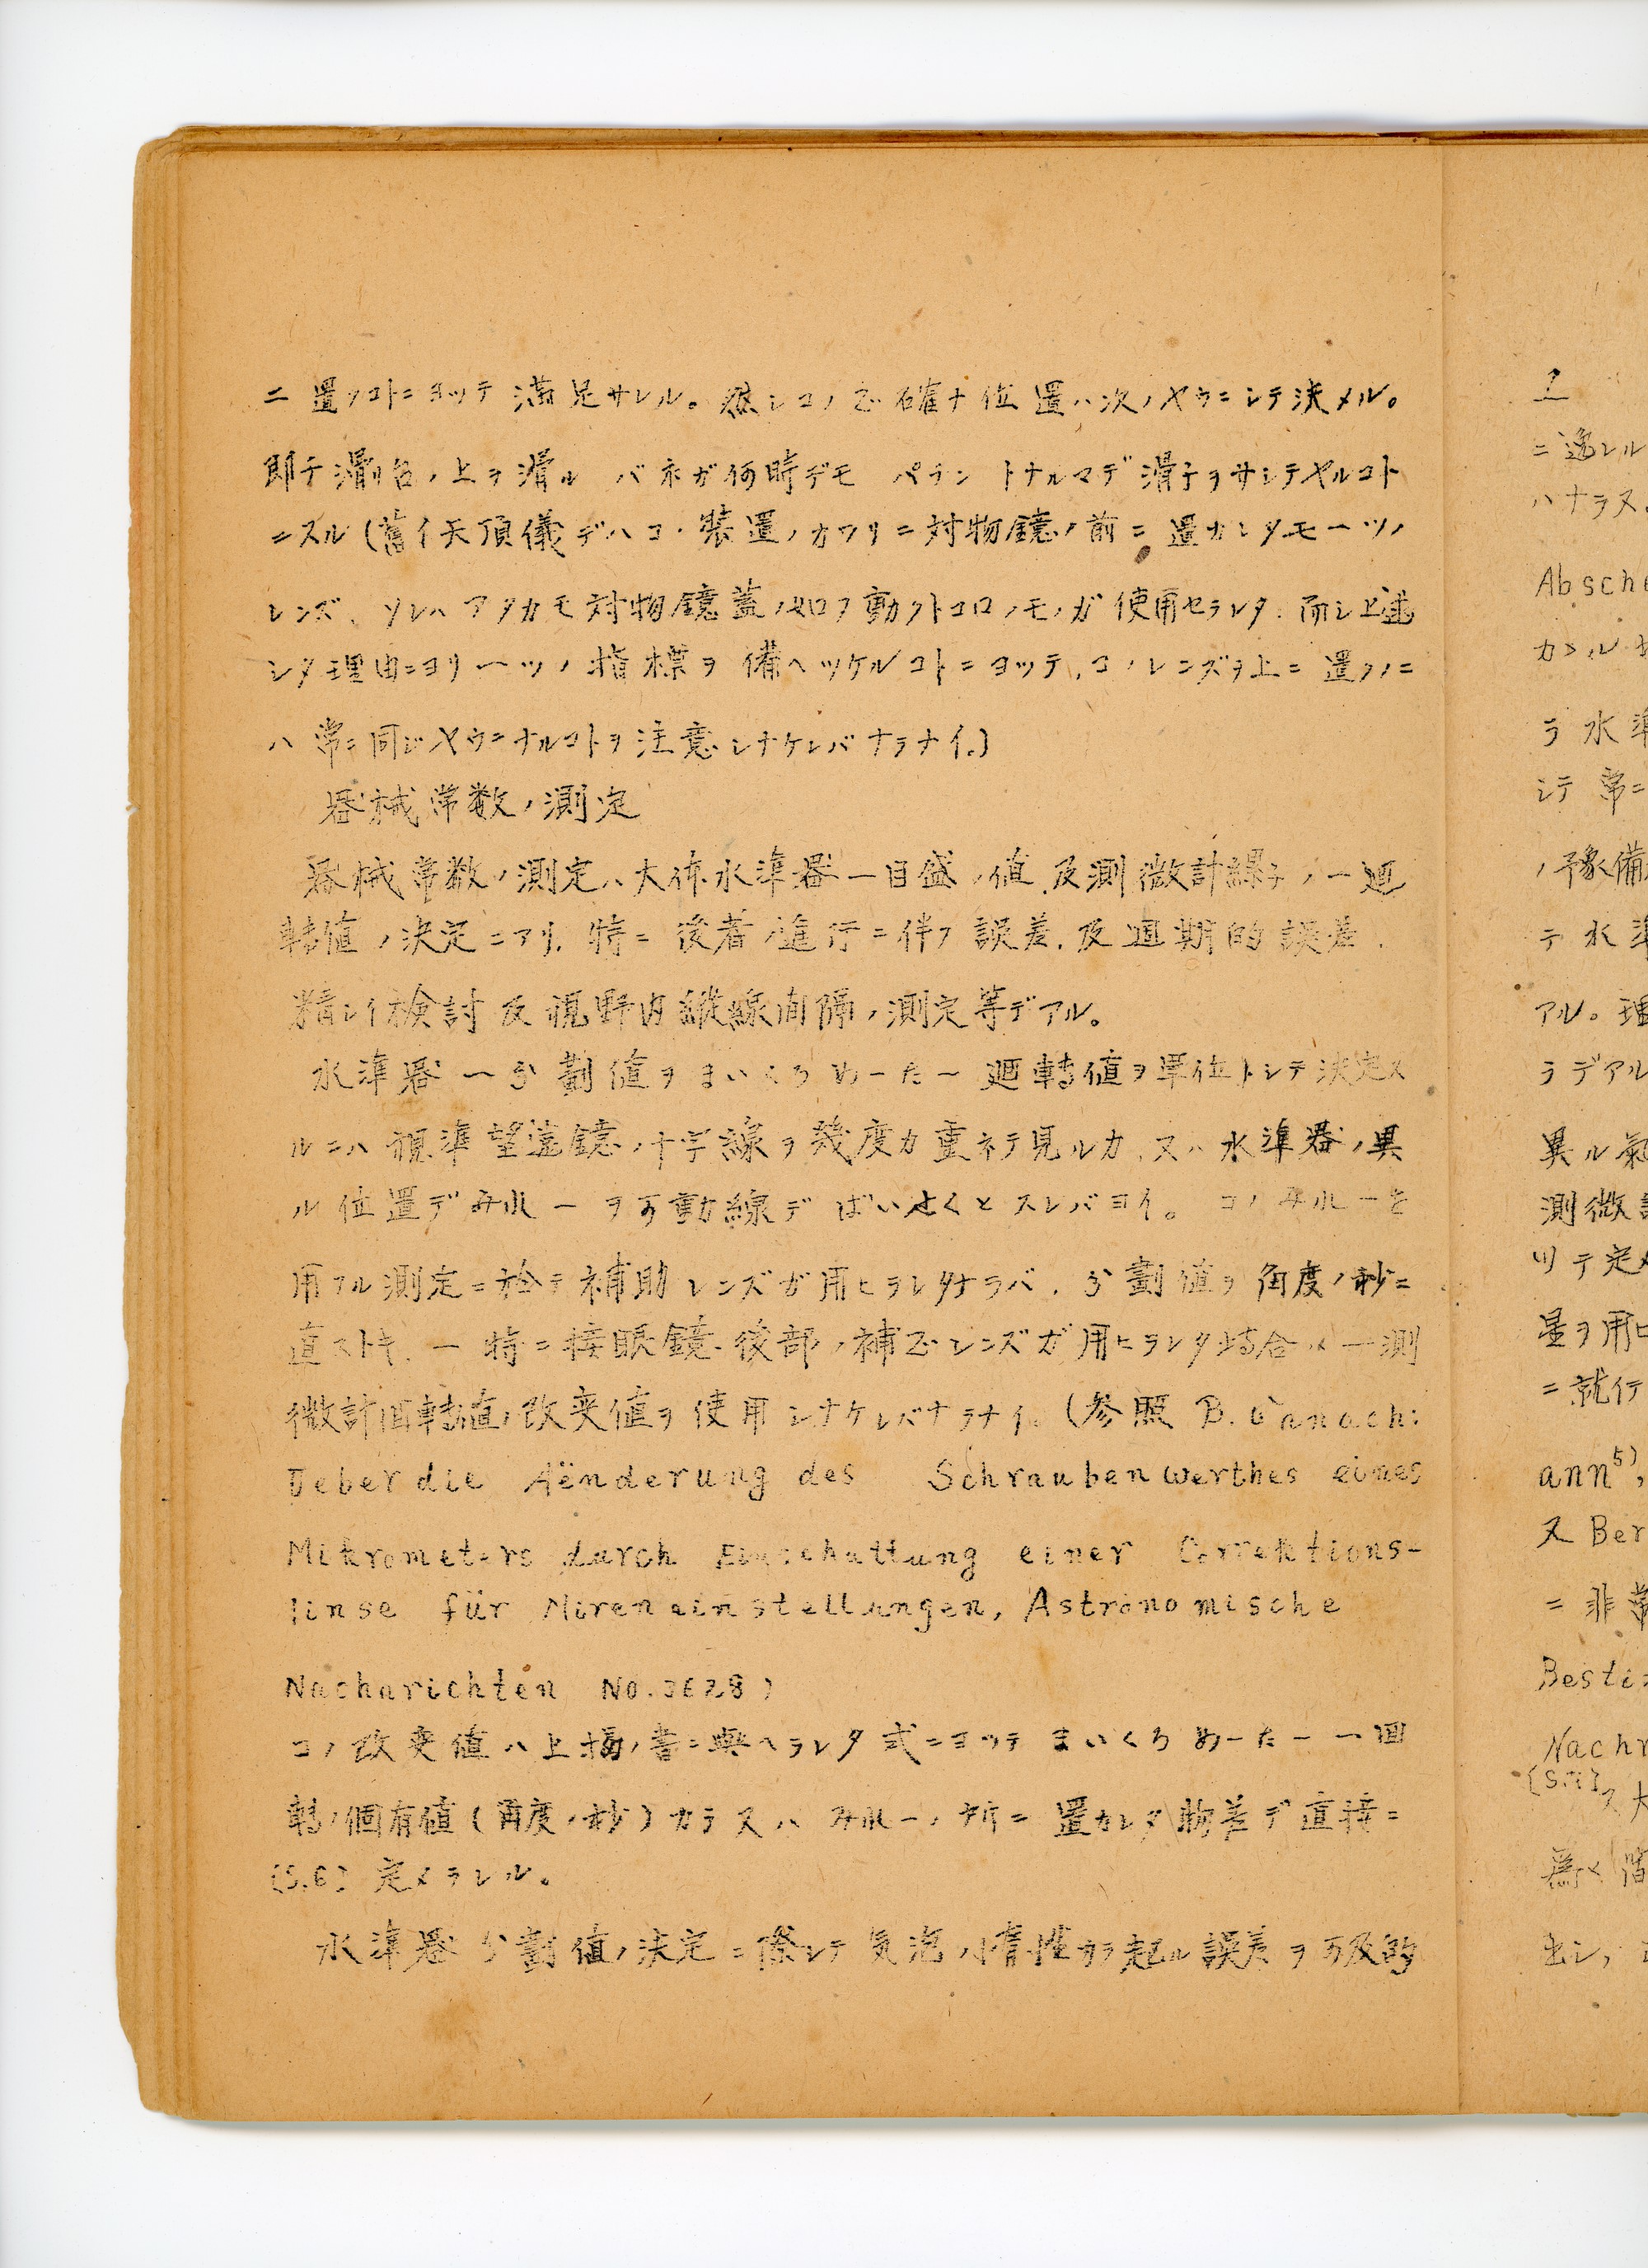 ニ置クコトニヨッテ満足サレル。然シコノ正確ナ位置ハ次ノヤウニシテ決メル。
即チ滑リ台ノ上ヲ滑ル バネガ何時デモ パチン トナルマデ滑子ヲサシテヤルコト
ニスル(舊イ天頂儀デハコノ装置ノカワリニ対物鏡ノ前ニ置カレタモ一ツノ
レンズ、ソレハアタカモ対物鏡蓋ノ如ク動クトコロノモノガ使用セラレタ. 而シ上述
シタ理由ニヨリ一ツノ指標ヲ備ヘツケルコトニヨッテ、コノレンズヲ上ニ置クノニ
ハ常ニ同ジヤウニナルコトヲ注意シナケレバナラナイ。)
器械常数ノ測定
器械常数ノ測定ハ大体水準器一目盛ノ値及測微計螺子ノ一廻
轉値ノ決定ニアリ. 特ニ後者ノ進行ニ伴フ誤差.及週期的誤差.
精シイ檢討及視野内縦線間隔ノ測定等デアル。
水準器一分劃値ヲまいくろめーたー廻轉値ヲ單位トシテ決定ス
ルニハ視準望遠鏡ノ十字線ヲ幾度カ重ネテ見ルカ、又ハ水準器ノ異
ル位置デみルーヲ可動線デばいせくとスレバヨイ。コノみルーを
用フル測定ニ於テ補助レンズガ用ヒラレタナラバ. 分劃値ヲ角度ノ秒ニ
直ストキ. ー特ニ接眼鏡後部ノ補正レンズガ用ヒラレタ場合ハー測
微計回轉値ノ改変値ヲ使用シナケレバナラナイ。(参照 B. Wanach:
Ueber die Aënderung des Schraubenwerthes eines
Mikrometers durch Einschattung einer Correktions-
linse für Mireneinstellungen, Astronomische
Nacharichten No.3628)
コノ改変値ハ上掲ノ書ニ與ヘラレタ式ニヨッテまいくろめーたー一回
轉ノ個有値(角度ノ秒)カラ又ハみルーノ所ニ置カレタ物差デ直接ニ
[S.6] 定メラレル。
水準器分劃値ノ決定ニ際シテ気泡ノ惰性カラ起ル誤差ヲ可及的
1
ニ逸レル
ハナラヌ.
Absche
カメル
ラ水準
シテ常ニ
ノ予豫備
テ水準
アル。理
ラデアル
異ル氣
測微
ツテ定メ
星ヲ用ヒ
ニ就イテ
ann5),
又 Ber
ニ非常
Besti
Nachr
[S.7] 又大
為メ
出シ,